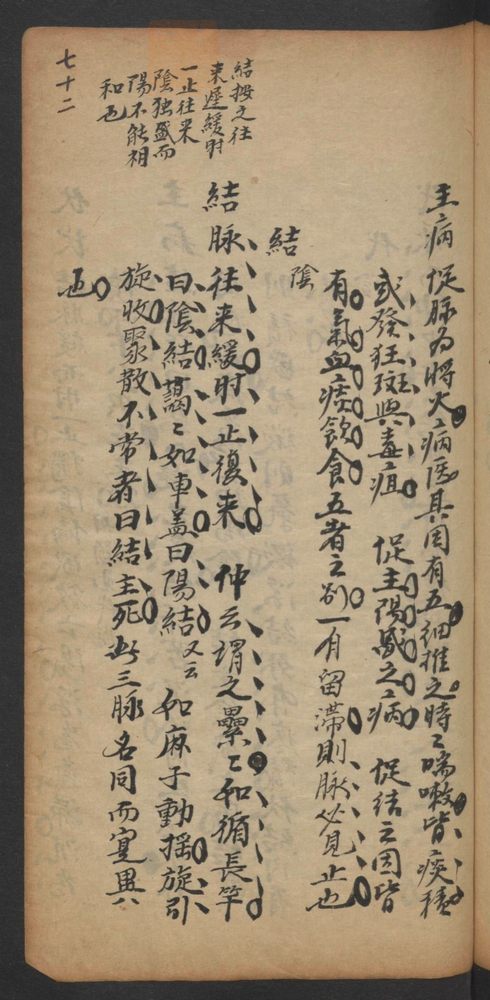 主病 促脉为將火病医其因有五細推之時〻喘嗽皆痰積
或發狂斑與毒疽 促主陽盛之病 促結之因皆
有氣血痰飲食五者之别一有留滯則脉必見止也
結 陰
結脉往来緩时一止復来 仲云謂之纍〻如循長竿
曰陰結藹〻如車盖曰陽結又云 如麻子動摇旋引
旋收聚散不常者曰結主死此三脉名同而寔異
也
結按之往
来遲緩时
一止往来
陰独盛而
陽不能相
和也
七十二